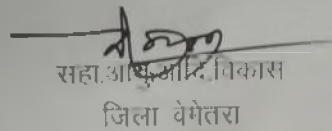 सहा.आयु.आदि.विकास
जिला वेमेतरा